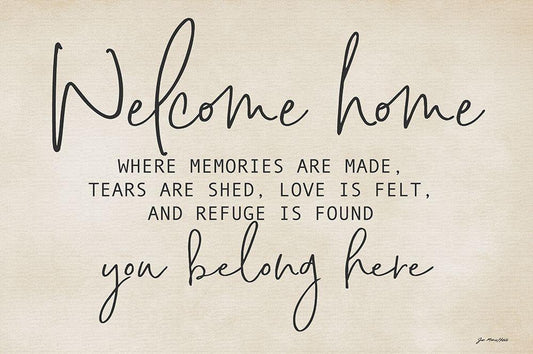 Welcome home
WHERE MEMORIES ARE MADE,
TEARS ARE SHED, LOVE IS FELT,
AND REFUGE IS FOUND
you belong here